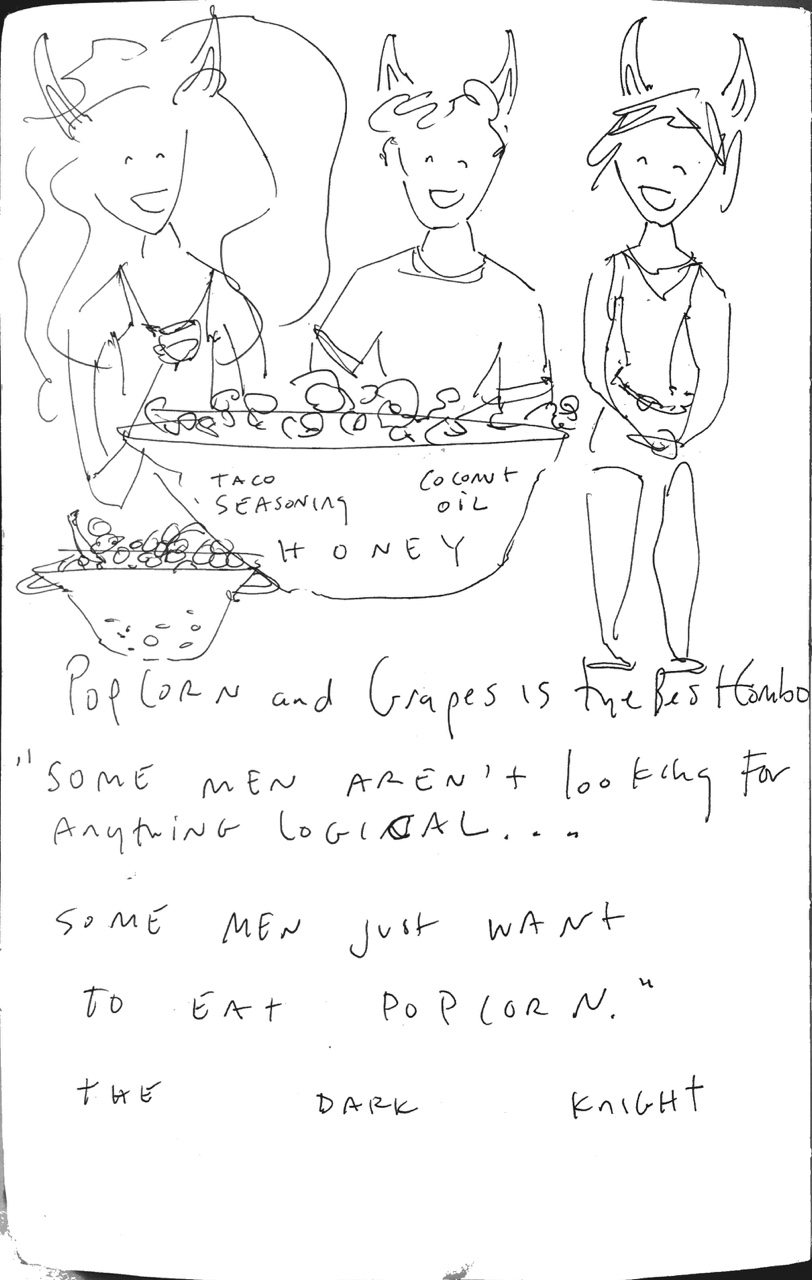 TACO
SEASONING
COCONUT
OIL
HONEY
POPCORN and Grapes is the Best Combo
"SOME MEN AREN't looking For
Anything LOGICAL...
SOME MEN just WANt
TO EAt POPCORN."
tHE DARK KnIGHt